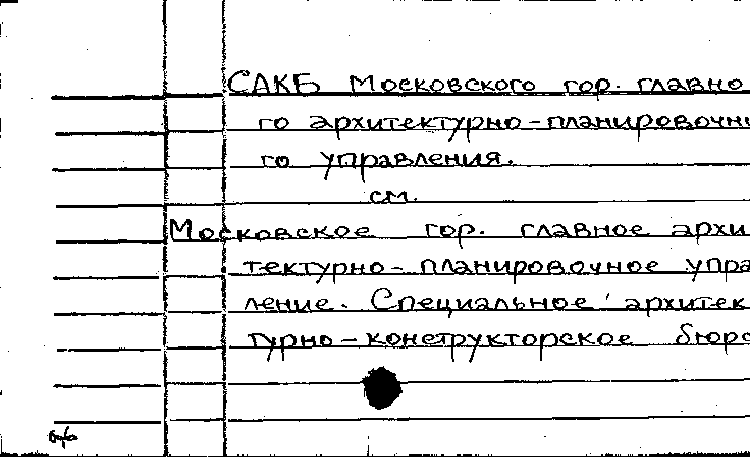 САКБ Московского гор. главно
го архитектурно-планировочн
го управления.
см.
Московское гор. главное архи
тектурно-планировочное упра
ление. Специальное архитек
турно-конструкторское бюро